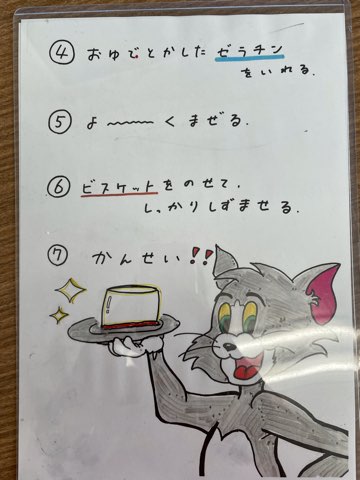 ④ おゆでとかした ゼラチン
をいれる.
⑤ よ〜〜〜く まぜる.
⑥ ビスケットをのせて,
しっかりしずませる.
⑦ かんせい!!